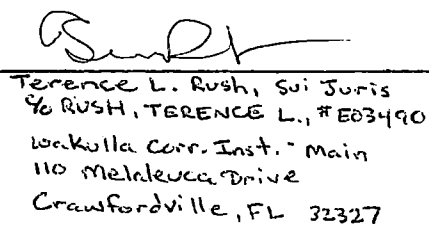 Terence L. Rush, Sui Juris
℅ RUSH, TERENCE L., #E03490
Wakulla Corr. Inst. - Main
110 Melaleuca Drive
Crawfordville, FL 32327